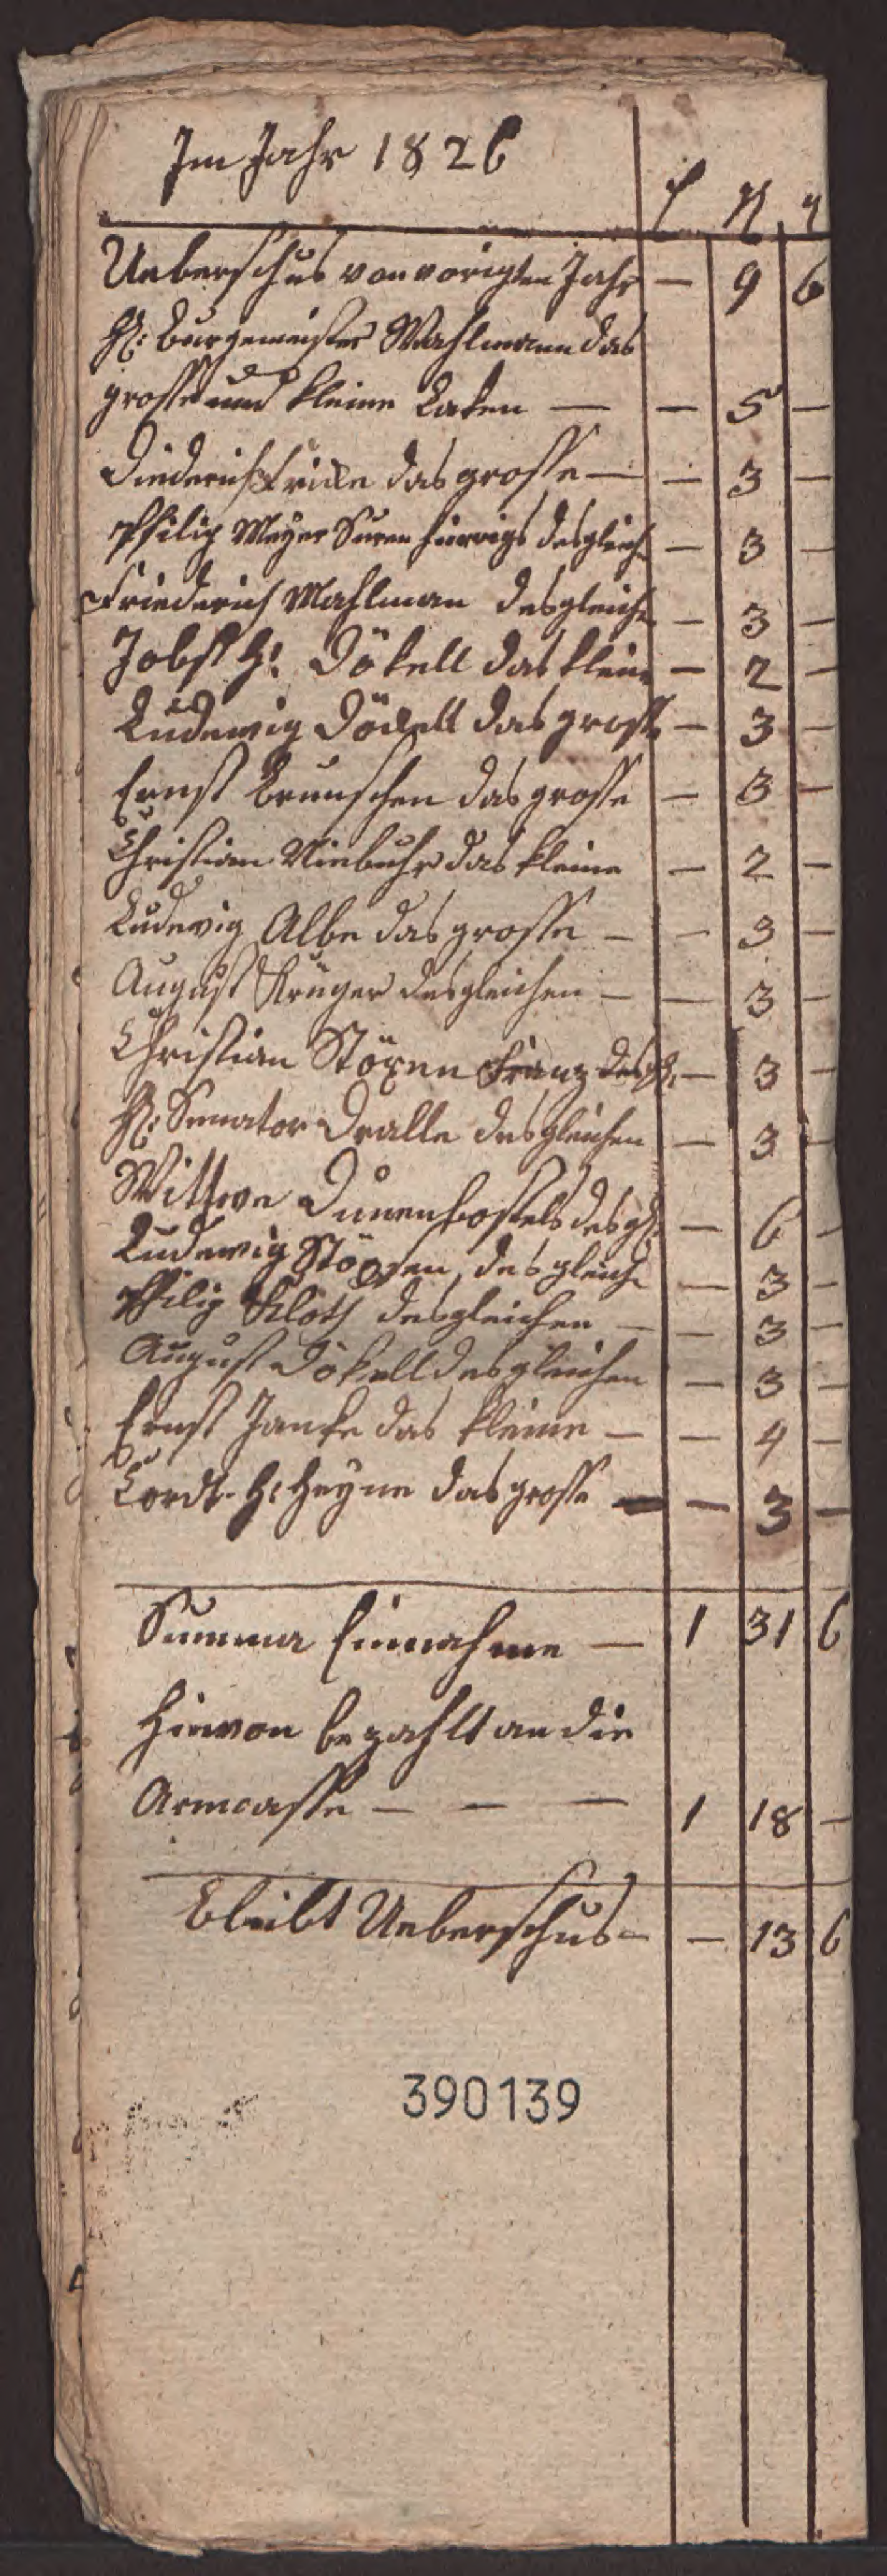 Im Jahr 1826
Ueberschus von vorigten Jahr — 9 6
H: Burgemeister Mahlmann das
grosse und kleine Laken — — 5 —
Diederich Fricke das grosse — — 3 —
Philip Meyer desgleich — 3 —
Friederich Mahlman desgleich — 3 —
Jobst H: Dökell das kleine — 2 —
Ludewig Döckell das grosse — 3 —
Ernst Brunschen das grosse — 3 —
Christian Niebuhr das kleine — 2 —
Ludewig Albe das grosse — — 3 —
August Krüger desgleichen — — 3 —
Christian Stöxen Franz desgl. — 3 —
H: Senator Dralle desgleichen — 3 —
Wittwe Dunenbostels desgl: — 6 —
Ludewig Stöxen, desgleich — 3 —
Philip Kloth desgleichen — — 3 —
August Dökell desgleichen — 3 —
Ernst Janke das kleine — — 4 —
Cordt H: Heyne das grosse — — 3 —
Summa Einnahme — 1 31 6
Hievon bezahlt an die
Armcasse — — — 1 18 —
bleibt Ueberschus — — 13 6
390139